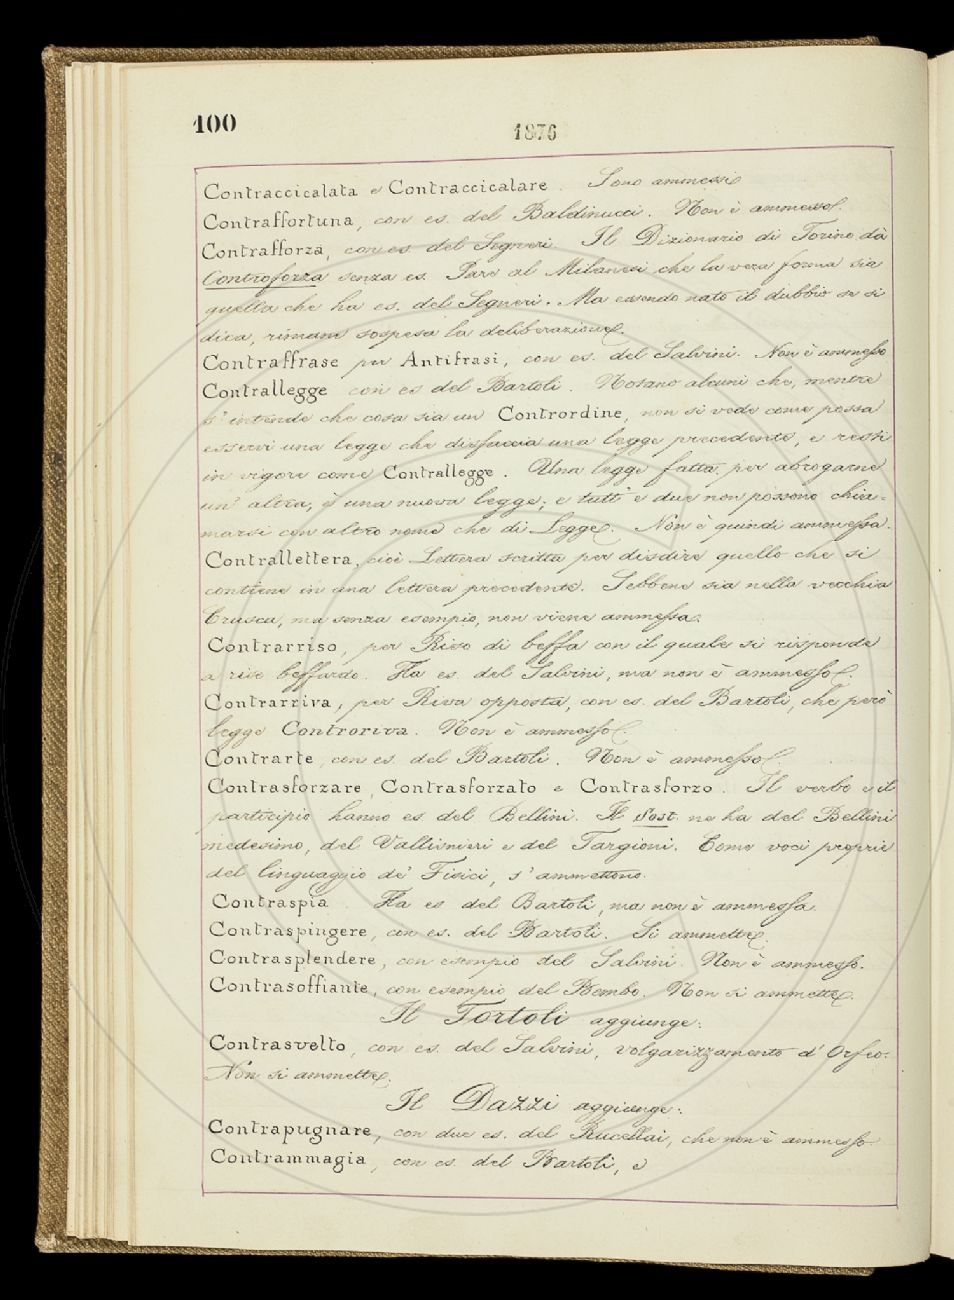 100
1876
Contraccicalata e Contraccicalare. Sono ammessi
Contraffortuna, con es. del Baldinucci. Non è ammesso.
Contrafforza, con es. del Segneri. Il Dizionario di Torino dà
Controforza senza es. Pare al Milanesi che la vera forma sia
quella che ha es. del Segneri. Ma essendo nato il dubbio se si
dica, rimane sospesa la deliberazione.
Contraffrase per Antifrasi, con es. del Salvini. Non è ammesso
Contrallegge con es del Bartoli. Notano alcuni che, mentre
s'intende che cosa sia un Contrordine, non si vede come possa
esservi una legge che disfaccia una legge precedente, e resti
in vigore come Contrallegge. Una legge fatta per abrogarne
un'altra, è una nuova legge; e tutt'e due non possono chia-
marsi con altro nome che di Legge. Non è quindi ammessa.
Contrallettera, cioè Lettera scritta per disdire quello che si
contiene in una lettera precedente. Sebbene sia nella vecchia
Crusca, ma senza esempio, non viene ammessa.
Contrarriso, per Riso di beffa con il quale si risponde
a riso beffardo. Ha es. del Salvini, ma non è ammesso.
Contrarriva, per Riva opposta, con es. del Bartoli, che però
legge Controriva. Non è ammesso.
Contrarte, con es. del Bartoli. Non è ammesso.
Contrasforzare, Contrasforzato e Contrasforzo. Il verbo e il
participio hanno es del Bellini. Il Sost. ne ha del Bellini
medesimo, del Vallisnieri e del Targioni. Come voci proprie
del linguaggio de' Fisici, s'ammettono.
Contraspia. Ha es del Bartoli, ma non è ammessa.
Contraspingere, con es. del Bartoli. Si ammette.
Contrasplendere, con esempio del Salvini. Non è ammesso.
Contrasoffiante, con esempio del Bembo. Non si ammette.
Il Tortoli aggiunge:
Contrasvelto, con es. del Salvini, volgarizzamento d'Orfeo.
Non si ammette.
Il Dazzi aggiunge:
Contrapugnare, con due es. del Rucellai, che non è ammesso
Contrammagia, con es. del Bartoli, e